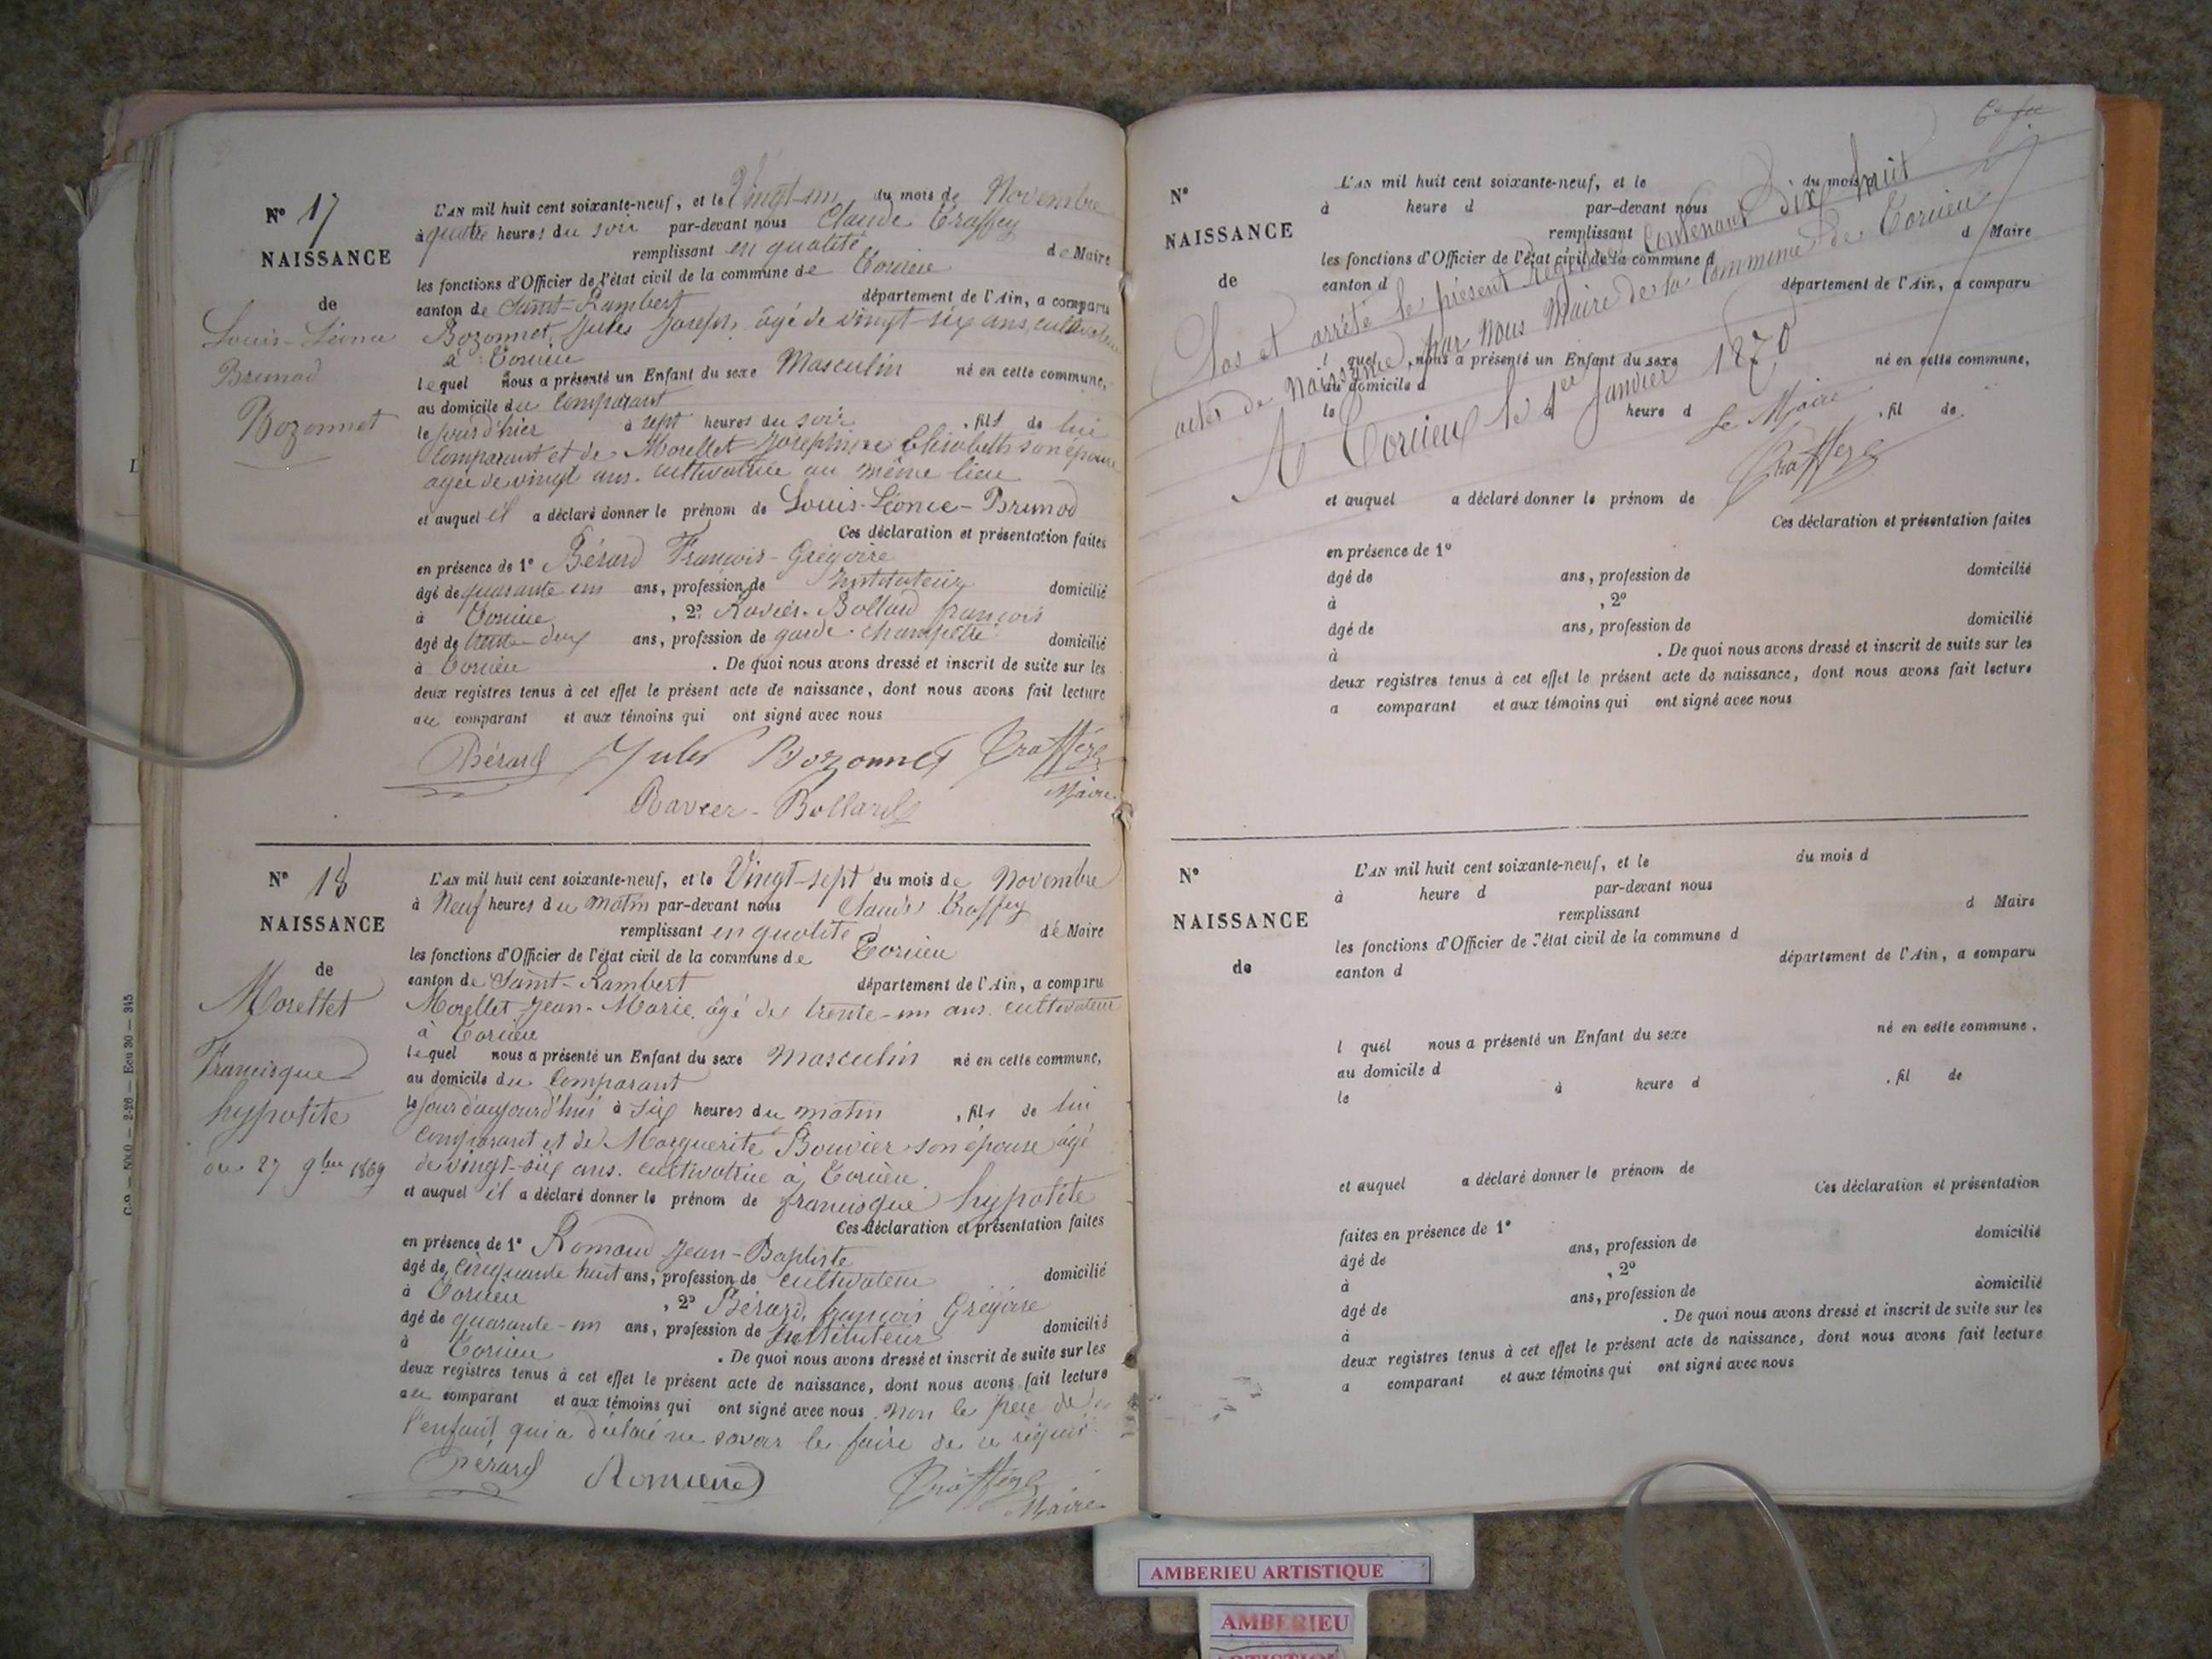 N° 17
NAISSANCE
de
Louis-Léonce
Brunod
Bozonnet
L'AN mil huit cent soixante-neuf, et le Vingt-un du mois de Novembre
à quatre heures du soir par-devant nous Claude Traffey
remplissant en qualité de Maire
les fonctions d'Officier de l'état civil de la commune de Torcieu
canton de Saint-Rambert département de l'Ain, a comparu
Bozonnet Jules Joseph, âgé de vingt-six ans, cultivateur
à Torcieu
lequel nous a présenté un Enfant du sexe Masculin né en cette commune,
au domicile du Comparant
le jour d'hier à sept heures du soir, fils de lui
Comparant et de Morellet Joséphine Elisabeth son épouse
agée de vingt ans. cultivatrice au même lieu
et auquel il a déclaré donner le prénom de Louis-Léonce-Brunod
Ces déclaration et présentation faites
en présence de 1° Bérard François-Grégoire
âgé de quarante un ans, profession de Instituteur domicilié
à Torcieu, 2° Ravier-Bollard françois
âgé de trente-deux ans, profession de garde-champetre domicilié
à Torcieu. De quoi nous avons dressé et inscrit de suite sur les
deux registres tenus à cet effet le présent acte de naissance, dont nous avons fait lecture
au comparant et aux témoins qui ont signé avec nous
Bérard Jules Bozonnet Traffey
Maire
Ravier-Bollard
N° 18
NAISSANCE
de
Morellet
Francisque
hypolite
du 27 9bre 1869
L'AN mil huit cent soixante-neuf, et le Vingt-sept du mois de Novembre
à Neuf heures du matin par-devant nous Claude Traffey
remplissant en qualité de Maire
les fonctions d'Officier de l'état civil de la commune de Torcieu
canton de Saint-Rambert département de l'Ain, a comparu
Morellet Jean-Marie âgé de trente-un ans. cultivateur
à Torcieu
lequel nous a présenté un Enfant du sexe Masculin né en cette commune,
au domicile du Comparant
le jour d'aujourd'hui à six heures du matin, fils de lui
Comparant et de Marguerite Bouvier son épouse âgé
de vingt-six ans. cultivatrice à Torcieu
et auquel il a déclaré donner le prénom de francisque hypolite
Ces déclaration et présentation faites
en présence de 1° Romand Jean-Baptiste
âgé de Cinquante huit ans, profession de cultivateur domicilié
à Torcieu, 2° Bérard, françois Grégoire
âgé de quarante-un ans, profession de Instituteur domicilié
à Torcieu. De quoi nous avons dressé et inscrit de suite sur les
deux registres tenus à cet effet le présent acte de naissance, dont nous avons fait lecture
au comparant et aux témoins qui ont signé avec nous. Non le père de
l'enfant qui a déclaré ne savoir le faire de ce requis.
Bérard Romand Traffey
Maire
C.9 — 2-26 — Ecu 30 — 345
N°
NAISSANCE
de
L'AN mil huit cent soixante-neuf, et le du mois
à heure d par-devant nous
remplissant d Maire
les fonctions d'Officier de l'état civil de la commune d
canton d département de l'Ain, a comparu
Clos et arrêté le présent Registre Contenant Dix huit
actes de Naissance par Nous Maire de la Commune de Torcieu
A Torcieu le 1er Janvier 1870
Le Maire
Traffey
l quel nous a présenté un Enfant du sexe né en cette commune,
au domicile d
le à heure d, fil de
et auquel a déclaré donner le prénom de
Ces déclaration et présentation faites
en présence de 1°
âgé de ans, profession de domicilié
à, 2°
âgé de ans, profession de domicilié
à. De quoi nous avons dressé et inscrit de suite sur les
deux registres tenus à cet effet le présent acte de naissance, dont nous avons fait lecture
a comparant et aux témoins qui ont signé avec nous
N°
NAISSANCE
de
L'AN mil huit cent soixante-neuf, et le du mois d
à heure d par-devant nous
remplissant d Maire
les fonctions d'Officier de l'état civil de la commune d
canton d département de l'Ain, a comparu
l quel nous a présenté un Enfant du sexe né en cette commune,
au domicile d
le à heure d, fil de
et auquel a déclaré donner le prénom de
Ces déclaration et présentation
faites en présence de 1°
âgé de ans, profession de domicilié
à, 2°
âgé de ans, profession de domicilié
à. De quoi nous avons dressé et inscrit de suite sur les
deux registres tenus à cet effet le présent acte de naissance, dont nous avons fait lecture
a comparant et aux témoins qui ont signé avec nous
AMBERIEU ARTISTIQUE
AMBERIEU
ARTISTIQUE